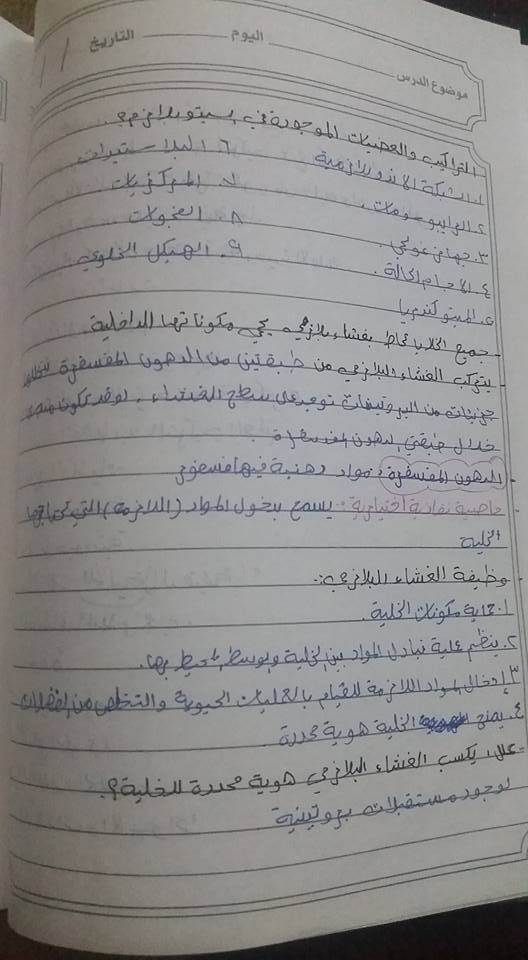 موضوع الدرس اليوم التاريخ / /
التراكيب والعضيات الموجودة في السيتوبلازم؟
١. الشبكة الاندوبلازمية ٦. البلاستيدات
٢. الرايبوسومات ٧. المريكزات
٣. جهاز غولجي. ٨. الفجوات
٤. الاجسام الحالة. ٩. الهيكل الخلوي
٥. الميتوكندريا
- جميع الخلايا تحاط بغشاء بلازمي يحمي مكوناتها الداخلية.
- يتركب الغشاء البلازمي من طبقتين من الدهون المفسفرة يتخللها
جزيئات من البروتينات توجد على سطح الغشاء، او قد تكون
خلال طبقتي الدهون المفسفرة.
الدهون المفسفرة: مواد دهنية فيها فسفور
خاصية نفاذية اختيارية: يسمح بدخول المواد (اللازمة) التي تحتاجها
الخلية
- وظيفة الغشاء البلازمي:
١. حماية مكونات الخلية.
٢. ينظم عملية تبادل المواد بين الخلية والوسط المحيط بها.
٣. إدخال المواد اللازمة للقيام بالعمليات الحيوية والتخلص من الفضلات
٤. يمنح الخلية هوية محددة.
- علل: يكسب الغشاء البلازمي هوية محددة للخلية؟
لوجود مستقبلات بروتينية